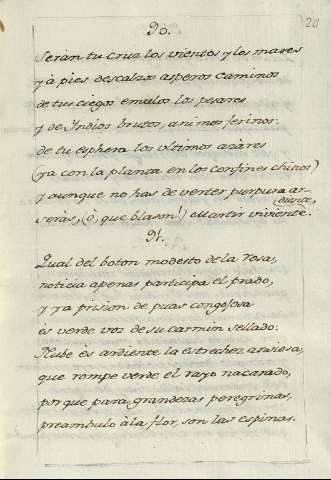 20
90.
Seràn tu Cruz los vientos y los mares
y à pies descalzos asperos caminos
de tus ciegos emulos los pesares
y de Yndios brutos, animos ferinos:
de tu esphera los ultimos azàres
(ya con la planta en los confines chinos)
y aunque no has de verter purpura ar-
diente,
seràs, (ò, que blason!) Martir viviente.
91.
Qual del boton modesto de la rosa,
noticia apenas participa el prado,
y ya prision de puas congojosa
ès verde voz de su carmin sellado:
Nube ès ardiente la estrechez ansiosa,
que rompe verde el rayo nacarado,
porque para grandezas peregrinas,
preambulo à la flor, son las espinas.